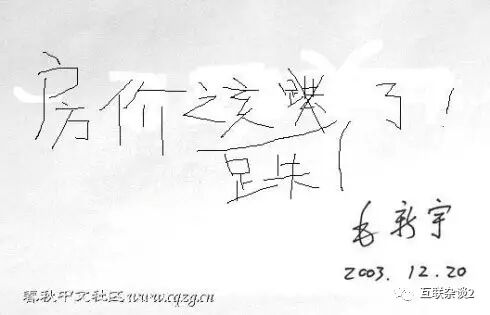 房价该了!
跌
毛新宇
2003.12.20
春秋中文社区www.cqzg.cn
互联杂谈2